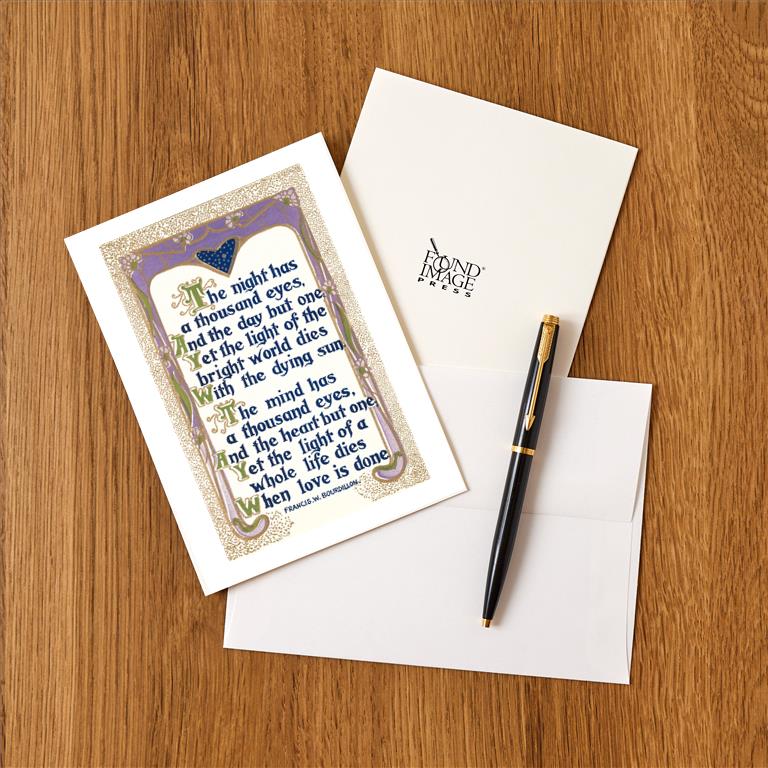 The night has
a thousand eyes,
And the day but one
Yet the light of the
bright world dies
With the dying sun.
The mind has
a thousand eyes,
And the heart but one
Yet the light of a
whole life dies
When love is done.
FRANCIS. W. BOURDILLON.
FOUND
IMAGE
PRESS